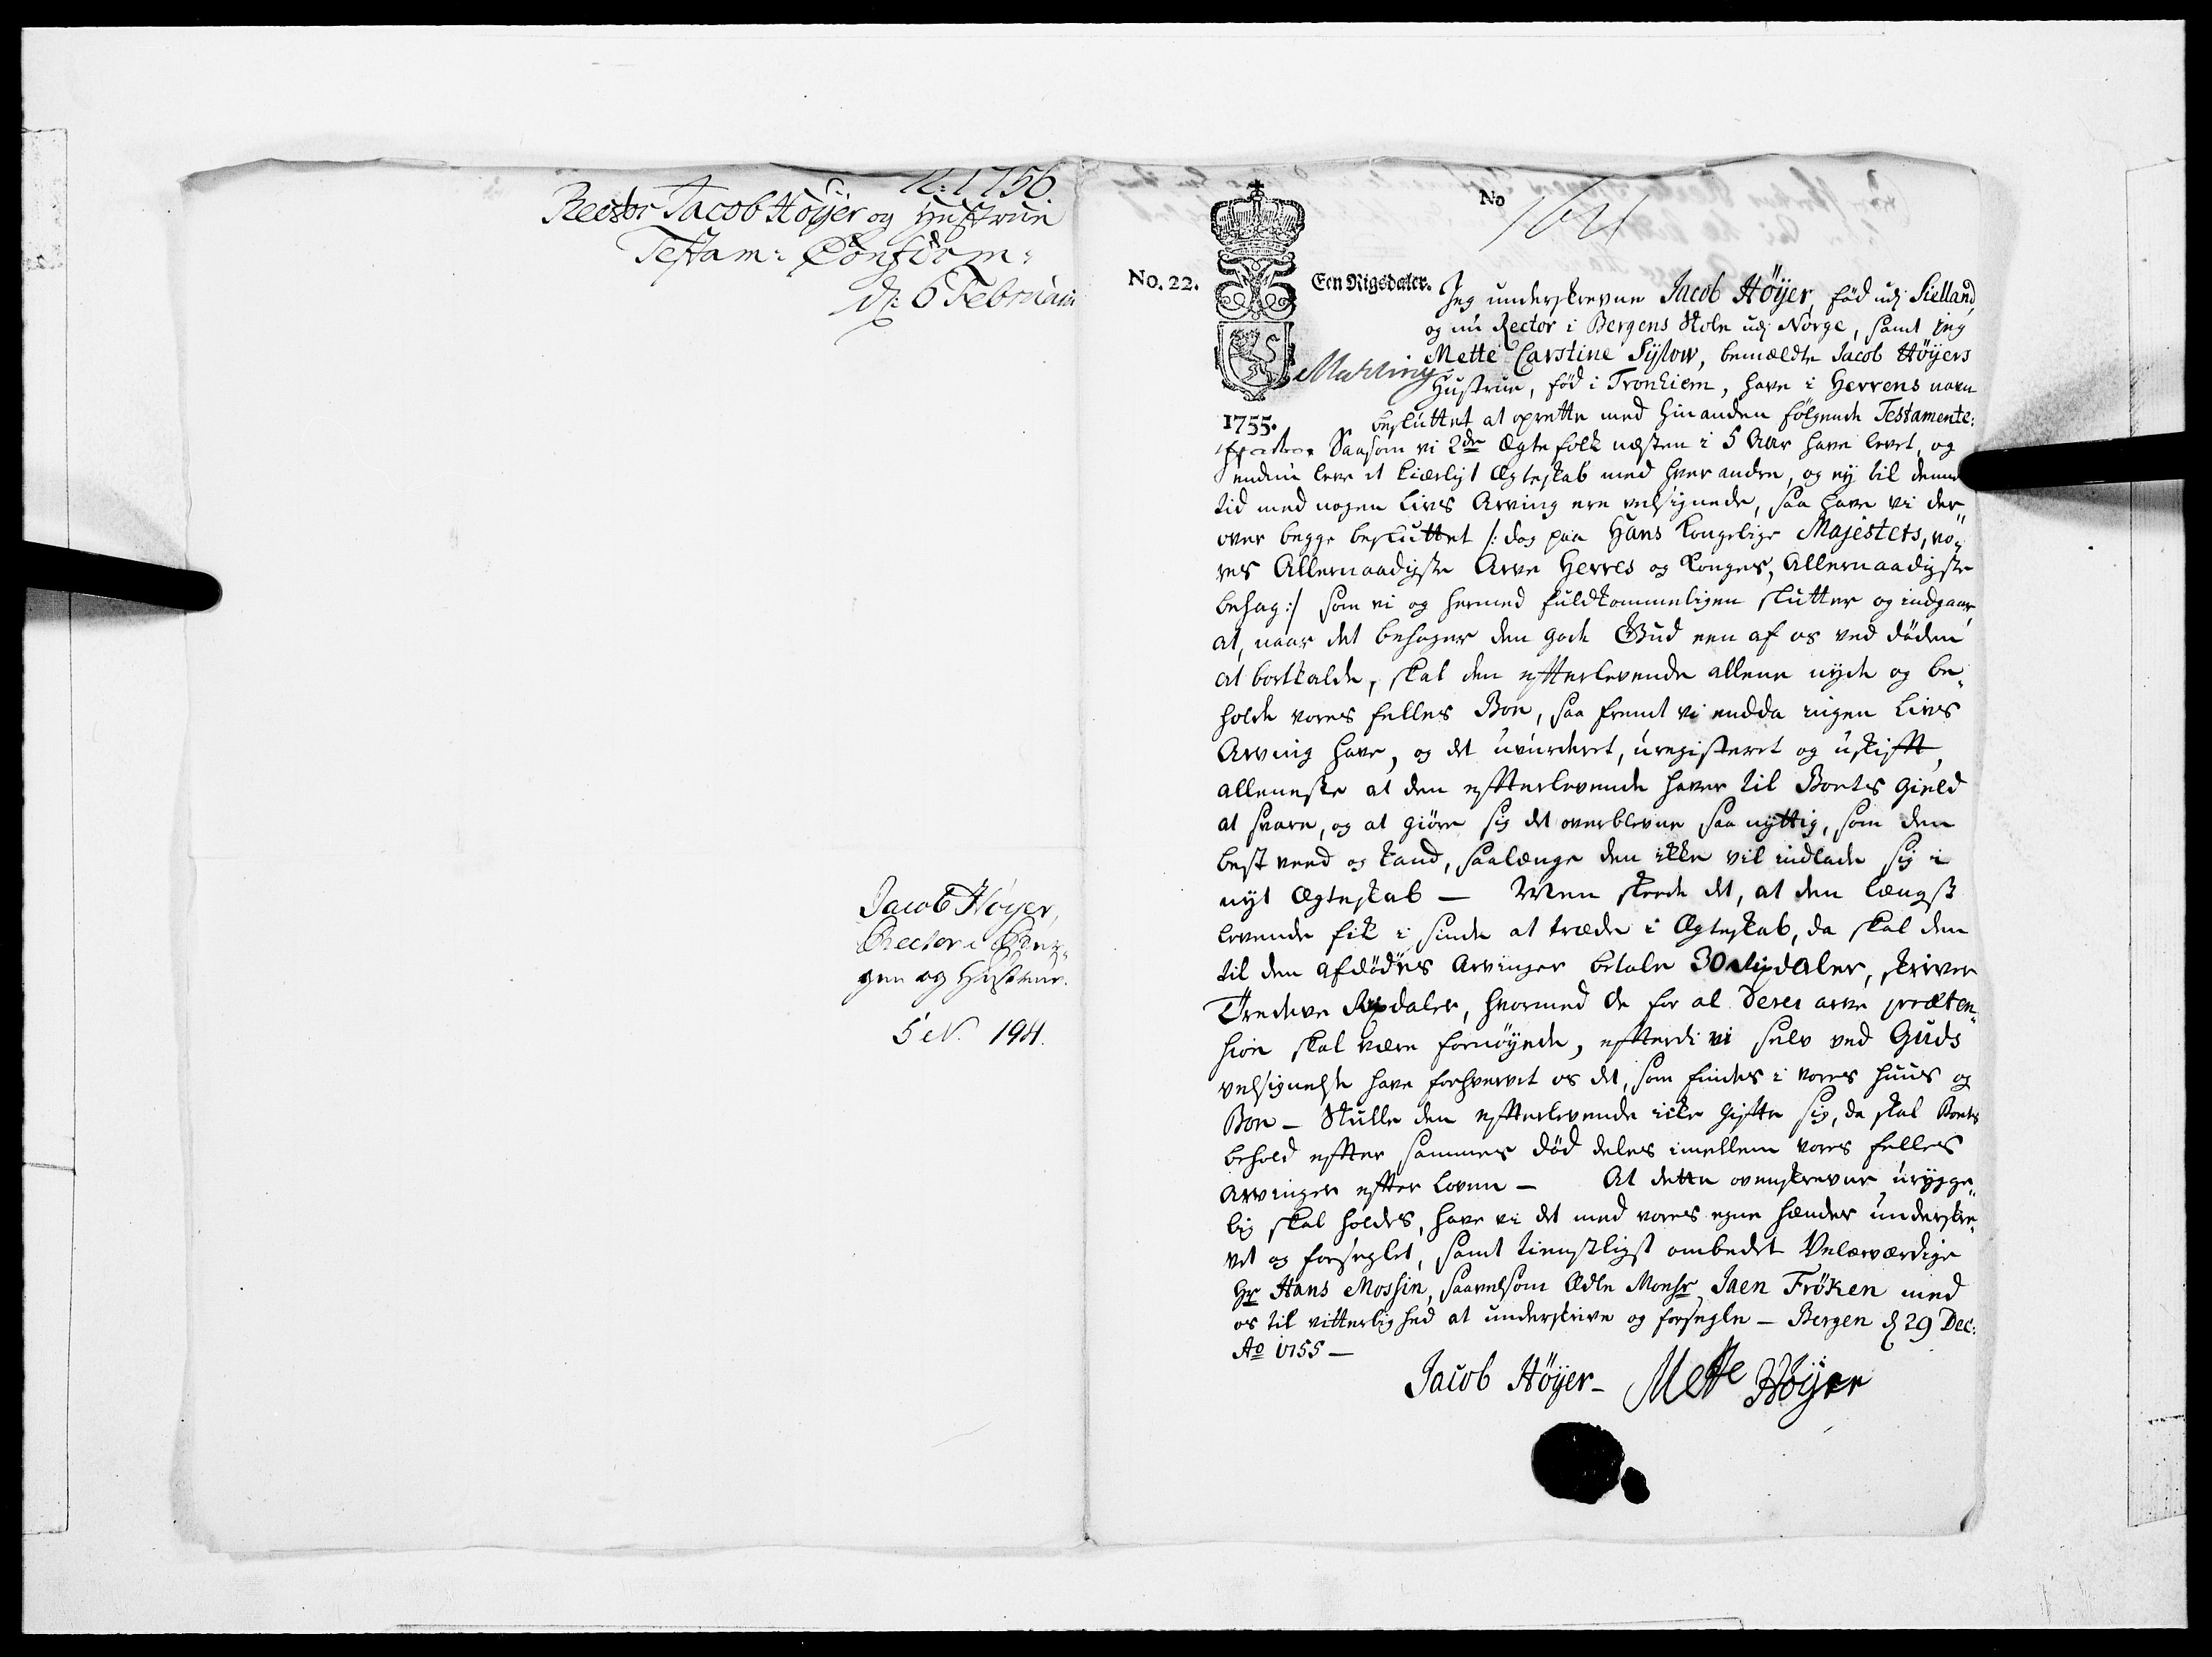 R: 1756
Rector Jacob Höyer og Hustrue
Testam: Confirm:
d: 6 Februarii
Jacob Höyer,
Rector i Ber-
gen og Hustrue.
5 N. 194.
No
1641
No. 22.
Een Rigsdaler.
1755.
Jeg underskrevne Jacob Höyer, fød udj Sielland,
og nu Rector i Bergens Skole udj Norge, samt jeg
Mette Carstine Sylow, bemældte Jacob Höyers
Hustrue, fød i Tronhiem, have i Herrens navn
besluttet at oprette med hinanden følgende Testamente:
Saasom vi 2de Ægtefolk næsten i 5 Aar have levet, og
endnu leve et kierligt Ægteskab med hverandre, og ey til denne
tid med nogen Livs Arving ere velsignede, saa have vi der-
over begge besluttet /: dog paa Hans Kongelige Majestets, vo-
res Allernaadigste Arve Herres og Konges, Allernaadigste
behag :/ som vi og hermed fuldkommeligen slutter og indgaar,
at, naar det behager den gode Gud een af os ved døden
at bortkalde, skal den efterlevende allene nyde og be-
holde vores felles Boe, saa fremt vi endda ingen Livs
Arving have, og det uvurderet, uregisteret og uskifft,
alleneste at den effterlevende haver til Boets gield
at svare, og at giøre sig det overblevne saa nyttig, som den
best veed og kand, saalænge den ikke vil indlade sig i
nyt Ægteskab — Men skeede det, at den længst
levende fik i sinde at træde i Ægteskab, da skal den
til den afdødes Arvinger betale 30 Rixdaler, skriver
Tredeve Rixdaler, hvormed de for al deres arve præten-
sion skal være fornøyede, effterdi vi selv ved Guds
velsignelse have forhvervet os det, som findes i vores huus og
Boe — Skulle den effterlevende icke giffte sig, da skal Boets
behold effter sammes død deles imellem vores felles
Arvinger effter loven — At dette ovenskrevne urygge-
lig skal holdes, have vi det med vores egne hænder underskre-
vet og forseglet, samt tienstligst ombedet Velærværdige
Hr Hans Mossin, saavelsom Ædle Monsr Jaen Fröken med
os til vitterlighed at underskrive og forsegle — Bergen d 29 Dec:
Ao 1755 —
Jacob Höyer – Mette Höyer